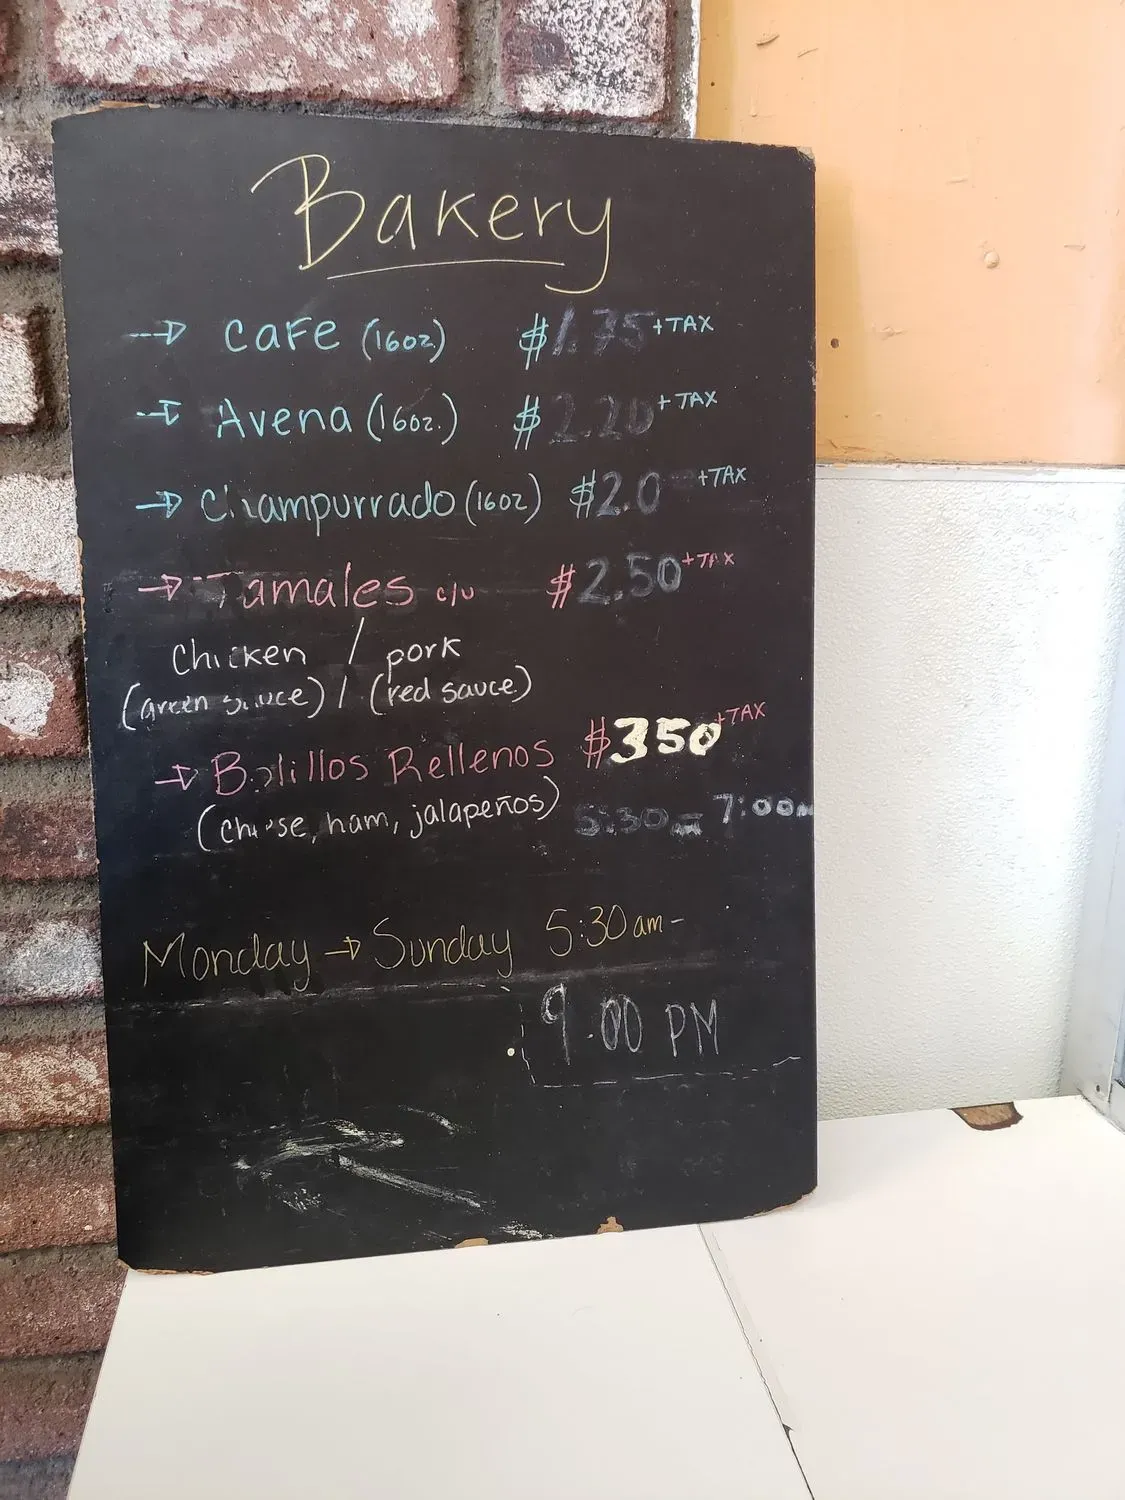 Bakery
Cafe (16oz) $1.75 +TAX
Avena (16oz.) $2.20 +TAX
Champurrado (16oz) $2.0 +TAX
Tamales c/u $2.50 +TAX
Chicken / pork
(green sauce) / (red sauce)
Bolillos Rellenos $350 +TAX
(cheese, ham, jalapeños) 5:30 - 7:00
Monday → Sunday 5:30am-
9:00 PM